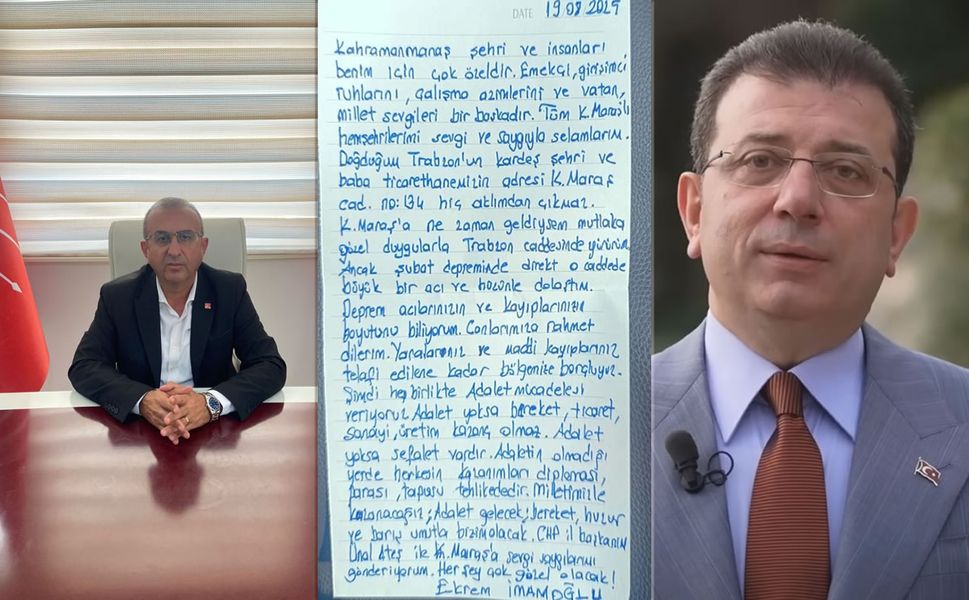 DATE 19 08 2025
Kahramanmaraş şehri ve insanları
benim için çok özeldir. Emekçi, girişimci
ruhlarını, çalışma azimlerini ve vatan,
millet sevgileri bir başkadır. Tüm K.Maraşlı
hemşehrilerimi sevgi ve saygıyla selamlarım.
Doğduğum Trabzon'un kardeş şehri ve
baba ticarethanemizin adresi K.Maraş
cad. no: 134 hiç aklımdan çıkmaz.
K.Maraş'a ne zaman geldiysem mutlaka
güzel duygularla Trabzon caddesinde yürürüm.
Ancak şubat depreminde direkt o caddede
büyük bir acı ve hüzünle dolaştım.
Deprem acılarınızın ve kayıplarınızın
boyutunu biliyorum. Canlarımıza rahmet
dilerim. Yaralarınız ve maddi kayıplarınız
telafi edilene kadar bölgenize borçluyuz.
Şimdi hep birlikte Adalet mücadelesi
veriyoruz. Adalet yoksa bereket, ticaret,
sanayi, üretim kazanç olmaz. Adalet
yoksa sefalet vardır. Adaletin olmadığı
yerde herkesin kazanımları diploması,
parası, tapusu tehlikededir. Milletimizle
kazanacağız; Adalet gelecek; bereket, huzur
ve barış umutla bizim olacak. CHP il başkanım
Ünal Ateş ile K.Maraş'a sevgi saygılarımı
gönderiyorum. Her şey çok güzel olacak!
Ekrem İMAMOĞLU